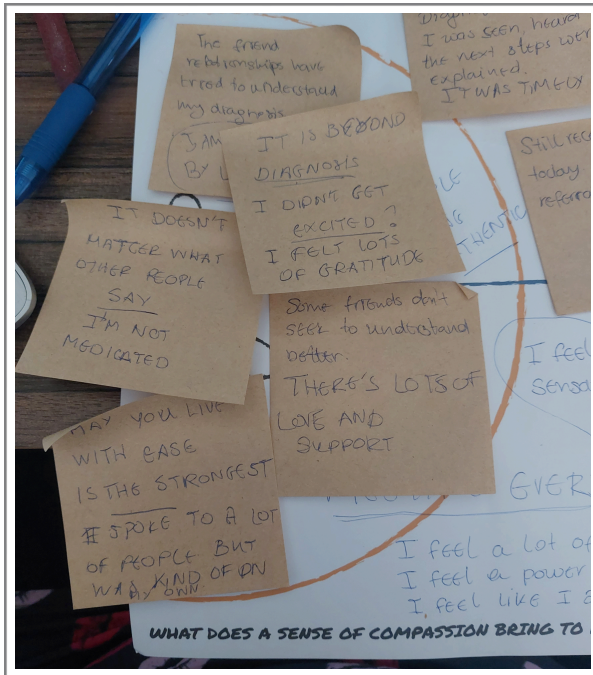 The friend
relationships have
tried to understand
my diagnosis
I AM
BY
I was seen, heard
the next steps wer
explained.
IT WAS TIMELY
IT IS BEYOND
DIAGNOSIS
I DIDN'T GET
EXCITED?
I FELT LOTS
OF GRATITUDE
Still rece
today
referra
THENTIC
IT DOESN'T
MATTER WHAT
OTHER PEOPLE
SAY
I'M NOT
MEDICATED
Some friends don't
SEEK to understand
better.
THERE'S LOTS OF
LOVE AND
SUPPORT
I feel
sensa
MAY YOU LIVE
WITH EASE
IS THE STRONGEST
I SPOKE TO A LOT
OF PEOPLE BUT
WAS KIND OF ON
MY OWN
EVER
I FEEL a lot of
I feel a power
I feel like I a
WHAT DOES A SENSE OF COMPASSION BRING TO